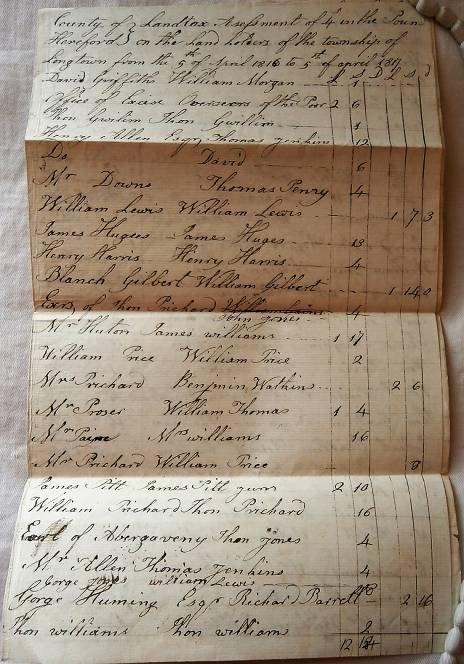 County of } Landtax Asefsment of 4 in the Pound
Hereford } on the Land holders of the township of
Longtown from the 5th of April 1816 to 5th of april 1817
David Griffiths William Morgan - £ S D £ S d
1
Office of Excise Overseers of the Poor 2 6
Thon Gwilim Thon Gwillim 1
Henry Allen Esqr Thomas Jenkins 12
Do David 6
Mr Downs Thomas Penry 4
William Lewis William Lewis 1 7 3
James Hugees James Huges 13
Henry Harris Henry Harris 4
Blanch Gilbert William Gilbert 1 14 0
Exrs of Thon Prichard John Jones 4
Mr Huton James Williams 1 17
William Price William Price 2
Mrs Prichard Benjmin Watkins 2 6
Mr Proser William Thomas 1 4
Mr Paine Mrs Williams 16
Mr Prichard William Price 8
James Pitt James Pitt junr 2 10
William Prichard Thon Prichard 16
Earl of Abergaveny Thon Jones 4
Mr Allen Thomas Jenkins 4
Gorge Jones William Lewis
Gorge Huming Esqr Richard Barrell 2 16
Thon Williams Thon Williams 2
12